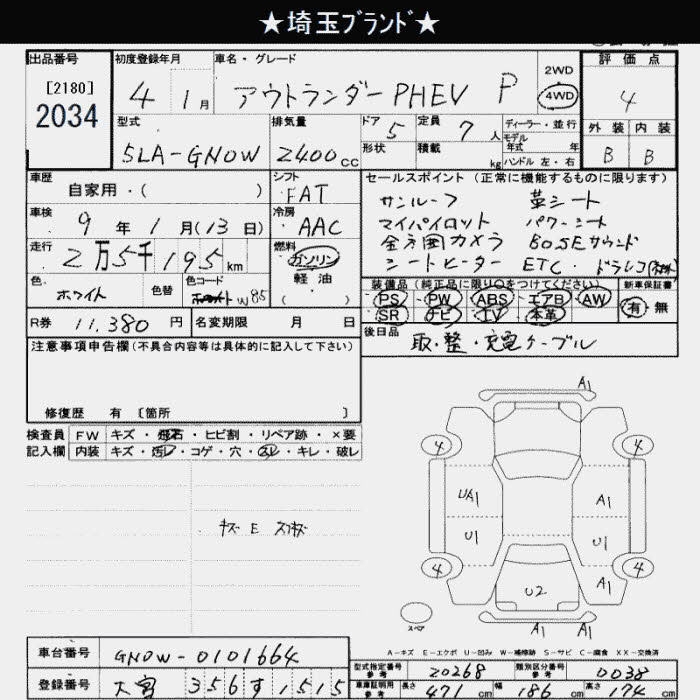 ★埼玉ﾌﾞﾗﾝﾄﾞ★
出品番号
[2180]
2034
初度登録年月
4 1月
車名・グレード
アウトランダーPHEV P
2WD
4WD
評価点
4
型式
5LA-GN0W
排気量
2400cc
ドア 5
定員 7人
ディーラー・並行
モデル
年式 年
形状
積載 kg
ハンドル 左・右
外装 内装
B B
車歴
自家用・( )
シフト
FAT
車検
9年1月(13日)
冷房
AAC
走行
2万5千195km
燃料
ガソリン
軽油
( )
色
ホワイト
色替
色コード
W85
R券 11,380円
名変期限 月 日
セールスポイント(正常に機能するものに限ります)
サンルーフ 革シート
マイパイロット パワーシート
全方囲カメラ BOSEサウンド
シートヒーター ETC ドラレコ
装備品(純正品に限り○をつけてください)
新車保証書
PS PW ABS エアB AW
SR ナビ TV 本革
有 無
後日品
取・整・充電ケーブル
注意事項申告欄(不具合内容等は具体的に記入して下さい)
修復歴 有 [箇所 ]
検査員
記入欄
FW キズ・飛石・ヒビ割・リペア跡・×要
内装 キズ・汚レ・コゲ・穴・スレ・キレ・破レ
キズ E スリキズ
A1
4 4
UA1 A1
U1 U1
4 4
U2 A1
A1 A1
スペア
A-キズ E-エクボ U-凹み W-補修跡 S-サビ C-腐食 XX-交換済
車台番号
GN0W-0101664
登録番号
大宮 356す1515
型式指定番号
参考
20268
類別区分番号
参考
0038
車庫証明用
参考
長さ 471cm 幅 186cm 高さ 174cm